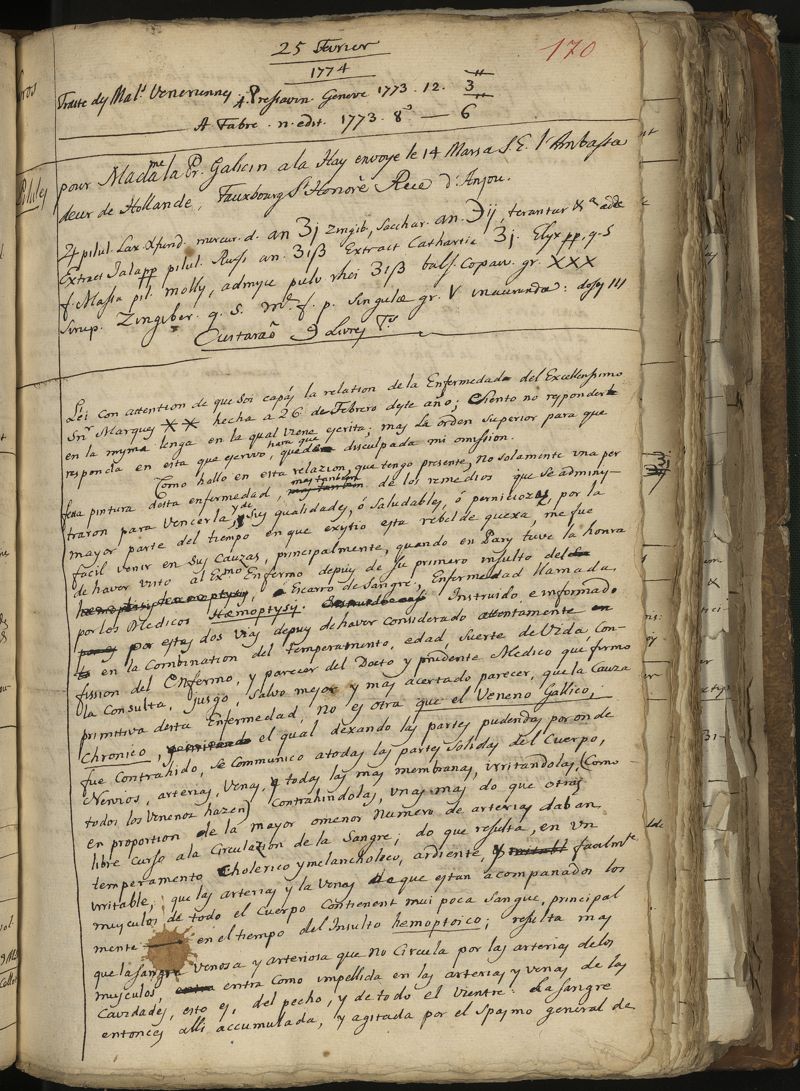 25 Fevrier
170
1774
Traite des Mal.s Veneriennes A. Pressavin. Geneve 1773. 12. 3"
A Fabre. n. edit. 1773. 8° — 6"
Pilules
pour Madame la Pr. Galicin a la Hay envoye le 14 Mars a S. E. l'Ambassa
deur de Hollande, Fauxbourg St Honorè Rue d'Anjou.
pilul. Lax. mercur. d. an ʒj Zingib, Sacchar. an. ℈ij, terantur
Extract Jalapp pilul. Russi an. ʒiß Extract Cathartic ʒj. Elyx pp. q. s
f. Massa pil. molly, admyce pulv rhei ʒiß bals. Copaiv. gr. XXX
Sirup. Zingiber. q. s. M. f. p. Singulæ gr. V inaurandæ: dosej III
Custarão 9 Livrej
Léi con attention de que soi capáz la relation de la Enfermedad del Excellensimo
Snr Marquez XX hecha a 26 de Febrero deste año; Siento no responder
en la mysma lenga en la qual viene escrita; mas La orden Superior para que
responda en esta que escrivo, hara que quede disculpada mi omission.
Como hallo en esta relazion, que tengo presente, No solamente una per
fecta pintura desta enfermedad, mas tambien de los remedios que se adminys-
traron para vencerla, y de sus qualidades, ó saludables, ó perniciozas, por la
mayor parte del tiempo en que exystio esta rebelde quexa, me fue
facil venir en sus Cauzas, principalmente, quando en Parys tuve la honra
de haver visto al Exmo Enfermo depuis de su primero insulto del
Escarro de Sangre, Enfermedad llamada
por los Medicos Hæmoptysy. Instruido e informado
por estas dos vias depuis de haver considerado attentamente
en la Combination del temperamento, edad suerte de vida, Con-
fission del Enfermo, y parecer del Docto y prudente Medico que firmo
la Consulta, jusgo, salvo mejor y mas acertado parecer, que la Cauza
primitiva desta Enfermedad, no es otra que el Veneno Gallico,
Chronico, el qual dexando las partes pudendas por onde
fue Contrahido, se Communico a todas las partes solidas del Cuerpo,
Nervios, arterias, venas, y todas las mas membranas, irritandolas, (Como
todos los Venenos hazen) Contrahindolas, unas mas do que otras
en proportion de la mayor o menor Numero de arterias daban
libre Curso a la Circulazion de la Sangre; do que resulta, en un
temperamento Cholerico y melancholico, ardiente, y facilmte
irritable, que las arterias y la venas de que estan acompanados los
musculos de todo el Cuerpo Contienent mui poca Sangre, principal
mente en el tiempo del Insulto hemoptoico; resulta mas
que la sangre venosa y arteriosa que no Circula por las arterias de los
musculos, entra Como impellida en las arterias y venas de las
Cavidades, esto es, del pecho, y de todo el Vientre. La sangre
entonces alli accumulada, y agitada por el Spasmo general de